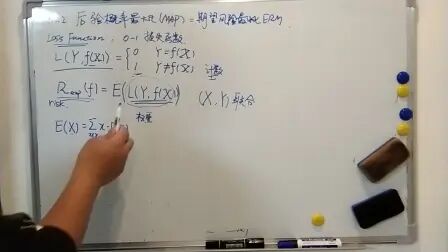 后验概率最大化(MAP) = 期望风险最小化 ERM
Loss Function, 0-1 损失函数
L(Y, f(X)) = { 0 Y = f(X)
1 Y ≠ f(X) 计数
R_exp(f) = E(L(Y, f(X))) (X, Y) 联合
risk.
E(X) = ∑ x·